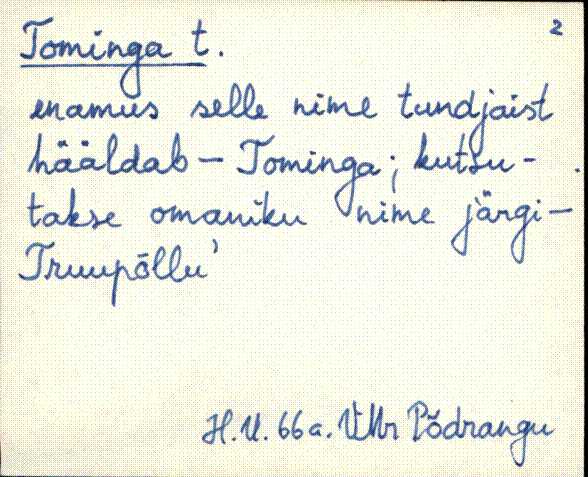 2
Tominga t.
enamus selle nime tundjaist
hääldab – Tominga; kutsu-
takse omaniku nime järgi –
Truupõllu'
H.U. 66a. VMr Põdrangu